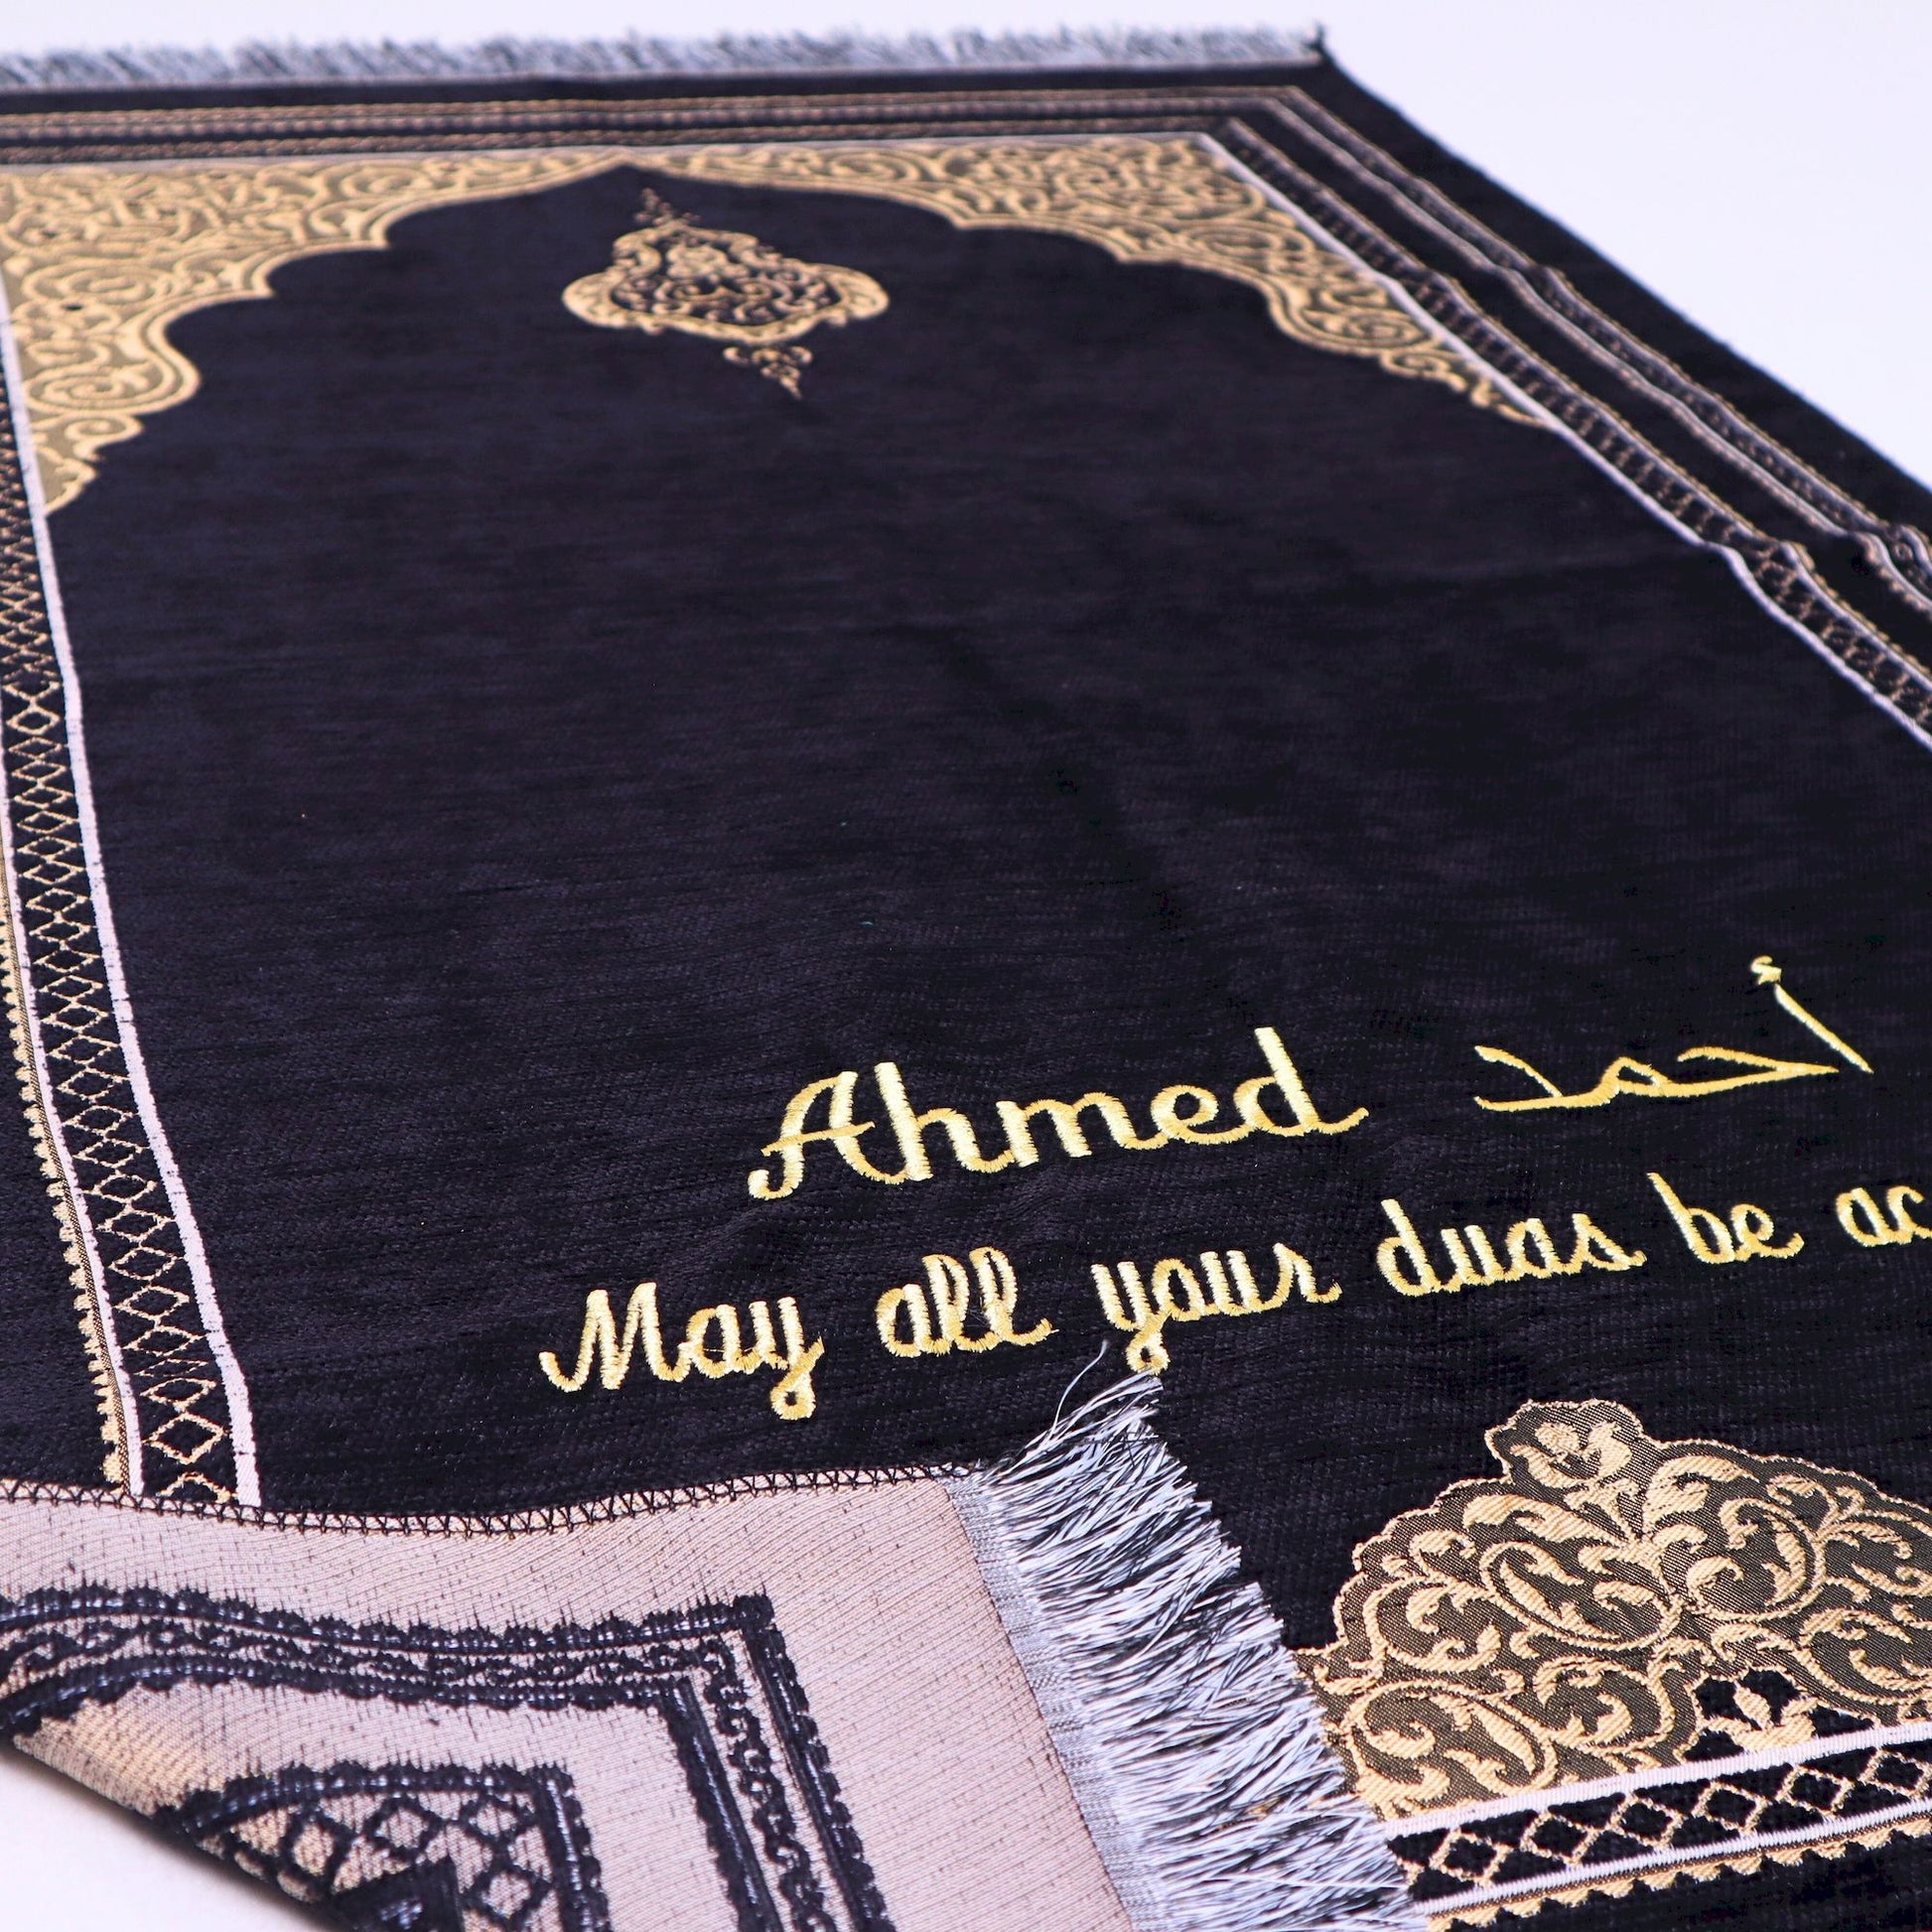 Ahmed أحمد
May all your duas be ac